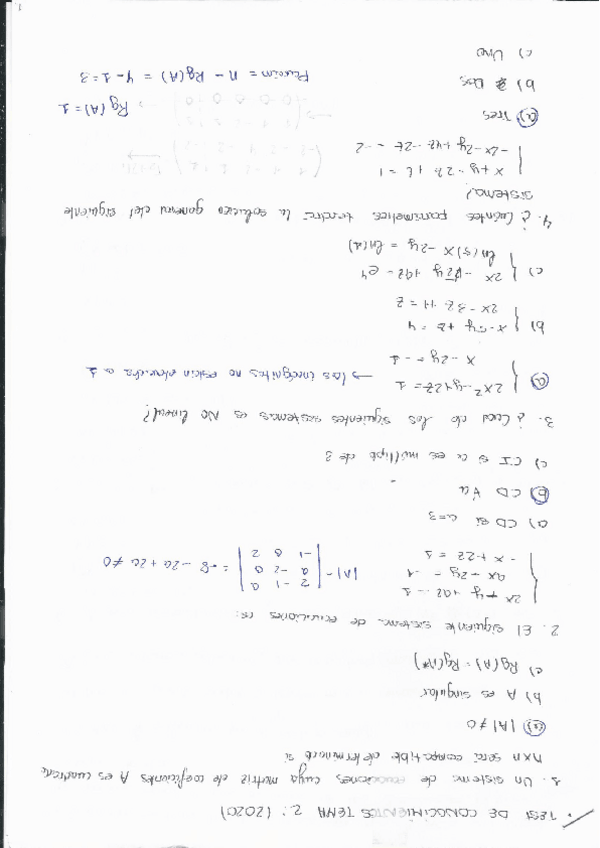 TEST DE CONOCIMIENTOS TEMA 2: (2020)
1. Un sistema de ecuaciones cuya matriz de coeficientes A es cuadrada
nxn será compatible determinado si
a) |A| ≠ 0
b) A es singular
c) Rg(A) = Rg(A*)
2. El siguiente sistema de ecuaciones es:
2x - y + az = 1
ax - 2y = 1
- x + 2z = 1
|A| = | 2 -1 a | a -2 0 | -1 0 2 | = -8 - 2a + 2a ≠ 0
a) CD si a=3
b) CD ∀a
c) CI si a es múltiplo de 3
3. ¿Cuál de los siguientes sistemas es NO lineal?
a) 2x² - y + 2z = 1
x - 2y = -1
→ las incógnitas no están elevadas a 1
b) x - 5y + z = 4
2x - 3z =
c) 2x - y + 9z = e⁴
ln(5)x - 2y = ln(2)
4. ¿Cuántos parámetros tendrá la solución general del siguiente
sistema?
x + y - 2z + t = 1
-2x - 2y + 4z - 2t = -2
a) Tres
Rg(A) = 1
b) Dos
Param = n - Rg(A) = 4 - 1 = 3
c) Uno